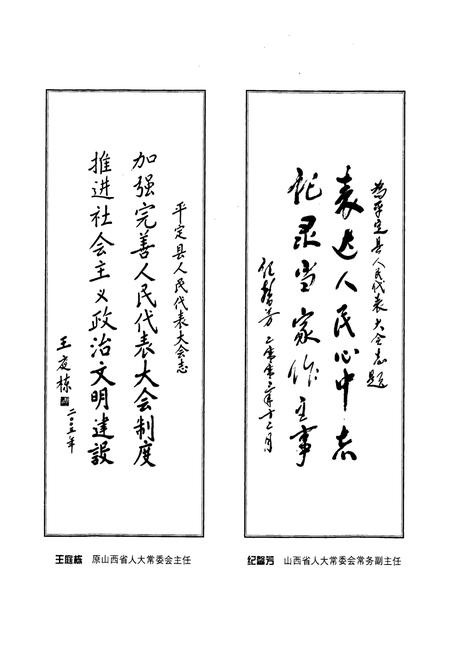 为平定县人民代表大会志题
表达人民心中志
记录当家作主事
纪馨芳 二零零三年十二月
平定县人民代表大会志
加强完善人民代表大会制度
推进社会主义政治文明建设
王庭栋 二〇〇三年
王庭栋 原山西省人大常委会主任
纪馨芳 山西省人大常委会常务副主任